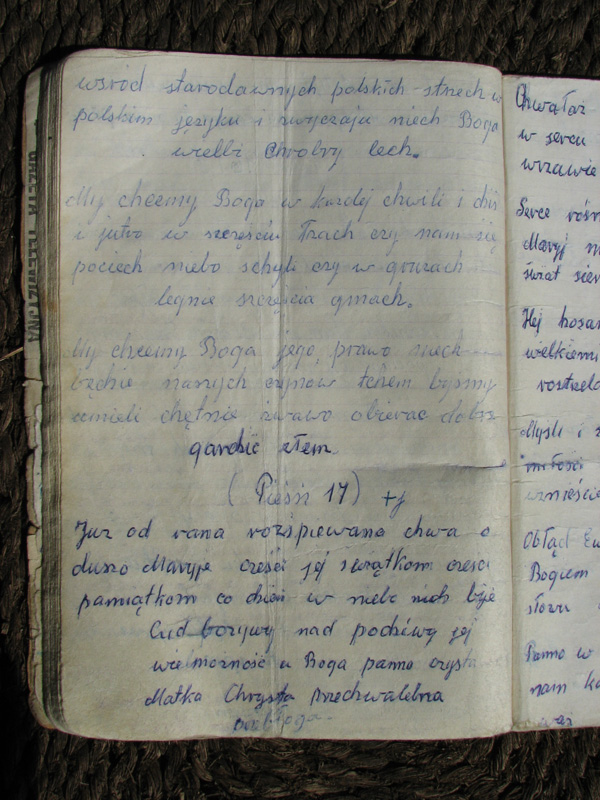 wśród starodawnych polskich strzech w
polskim języku i zwyczaju niech Boga
wielbi Chrobry lech.
My chcemy Boga w każdej chwili i dziś
i jutro w szczęściu łzach czy nam się
pociech niebo schyli czy w gruzach
legnie szczęścia gmach.
My chcemy Boga jego prawo niech
będzie naszych czynów tchem byśmy
umieli chętnie żwawo obierać dobrze
gardzić złem.
(Pieśń 17) +j
Już od rana rozśpiewana chwal o
duszo Maryję cześći jej świątkom cześci
pamiątkom co dzień w niebo niech bije
Cud bozywy nad podziwy jej
wielmożność u Boga panno czysta
Matka Chrysta przechwalebna
GAZETA TELEWIZYJNA
Chwałaż
w sercu
wrzawie
Serce rośn
Maryj
świat
Hej hosan
wielkiemi
rozstrzela
Myśli i
miłości
wznieście
Obłąd Ew
Bogiem
słowu
Panno w
nam